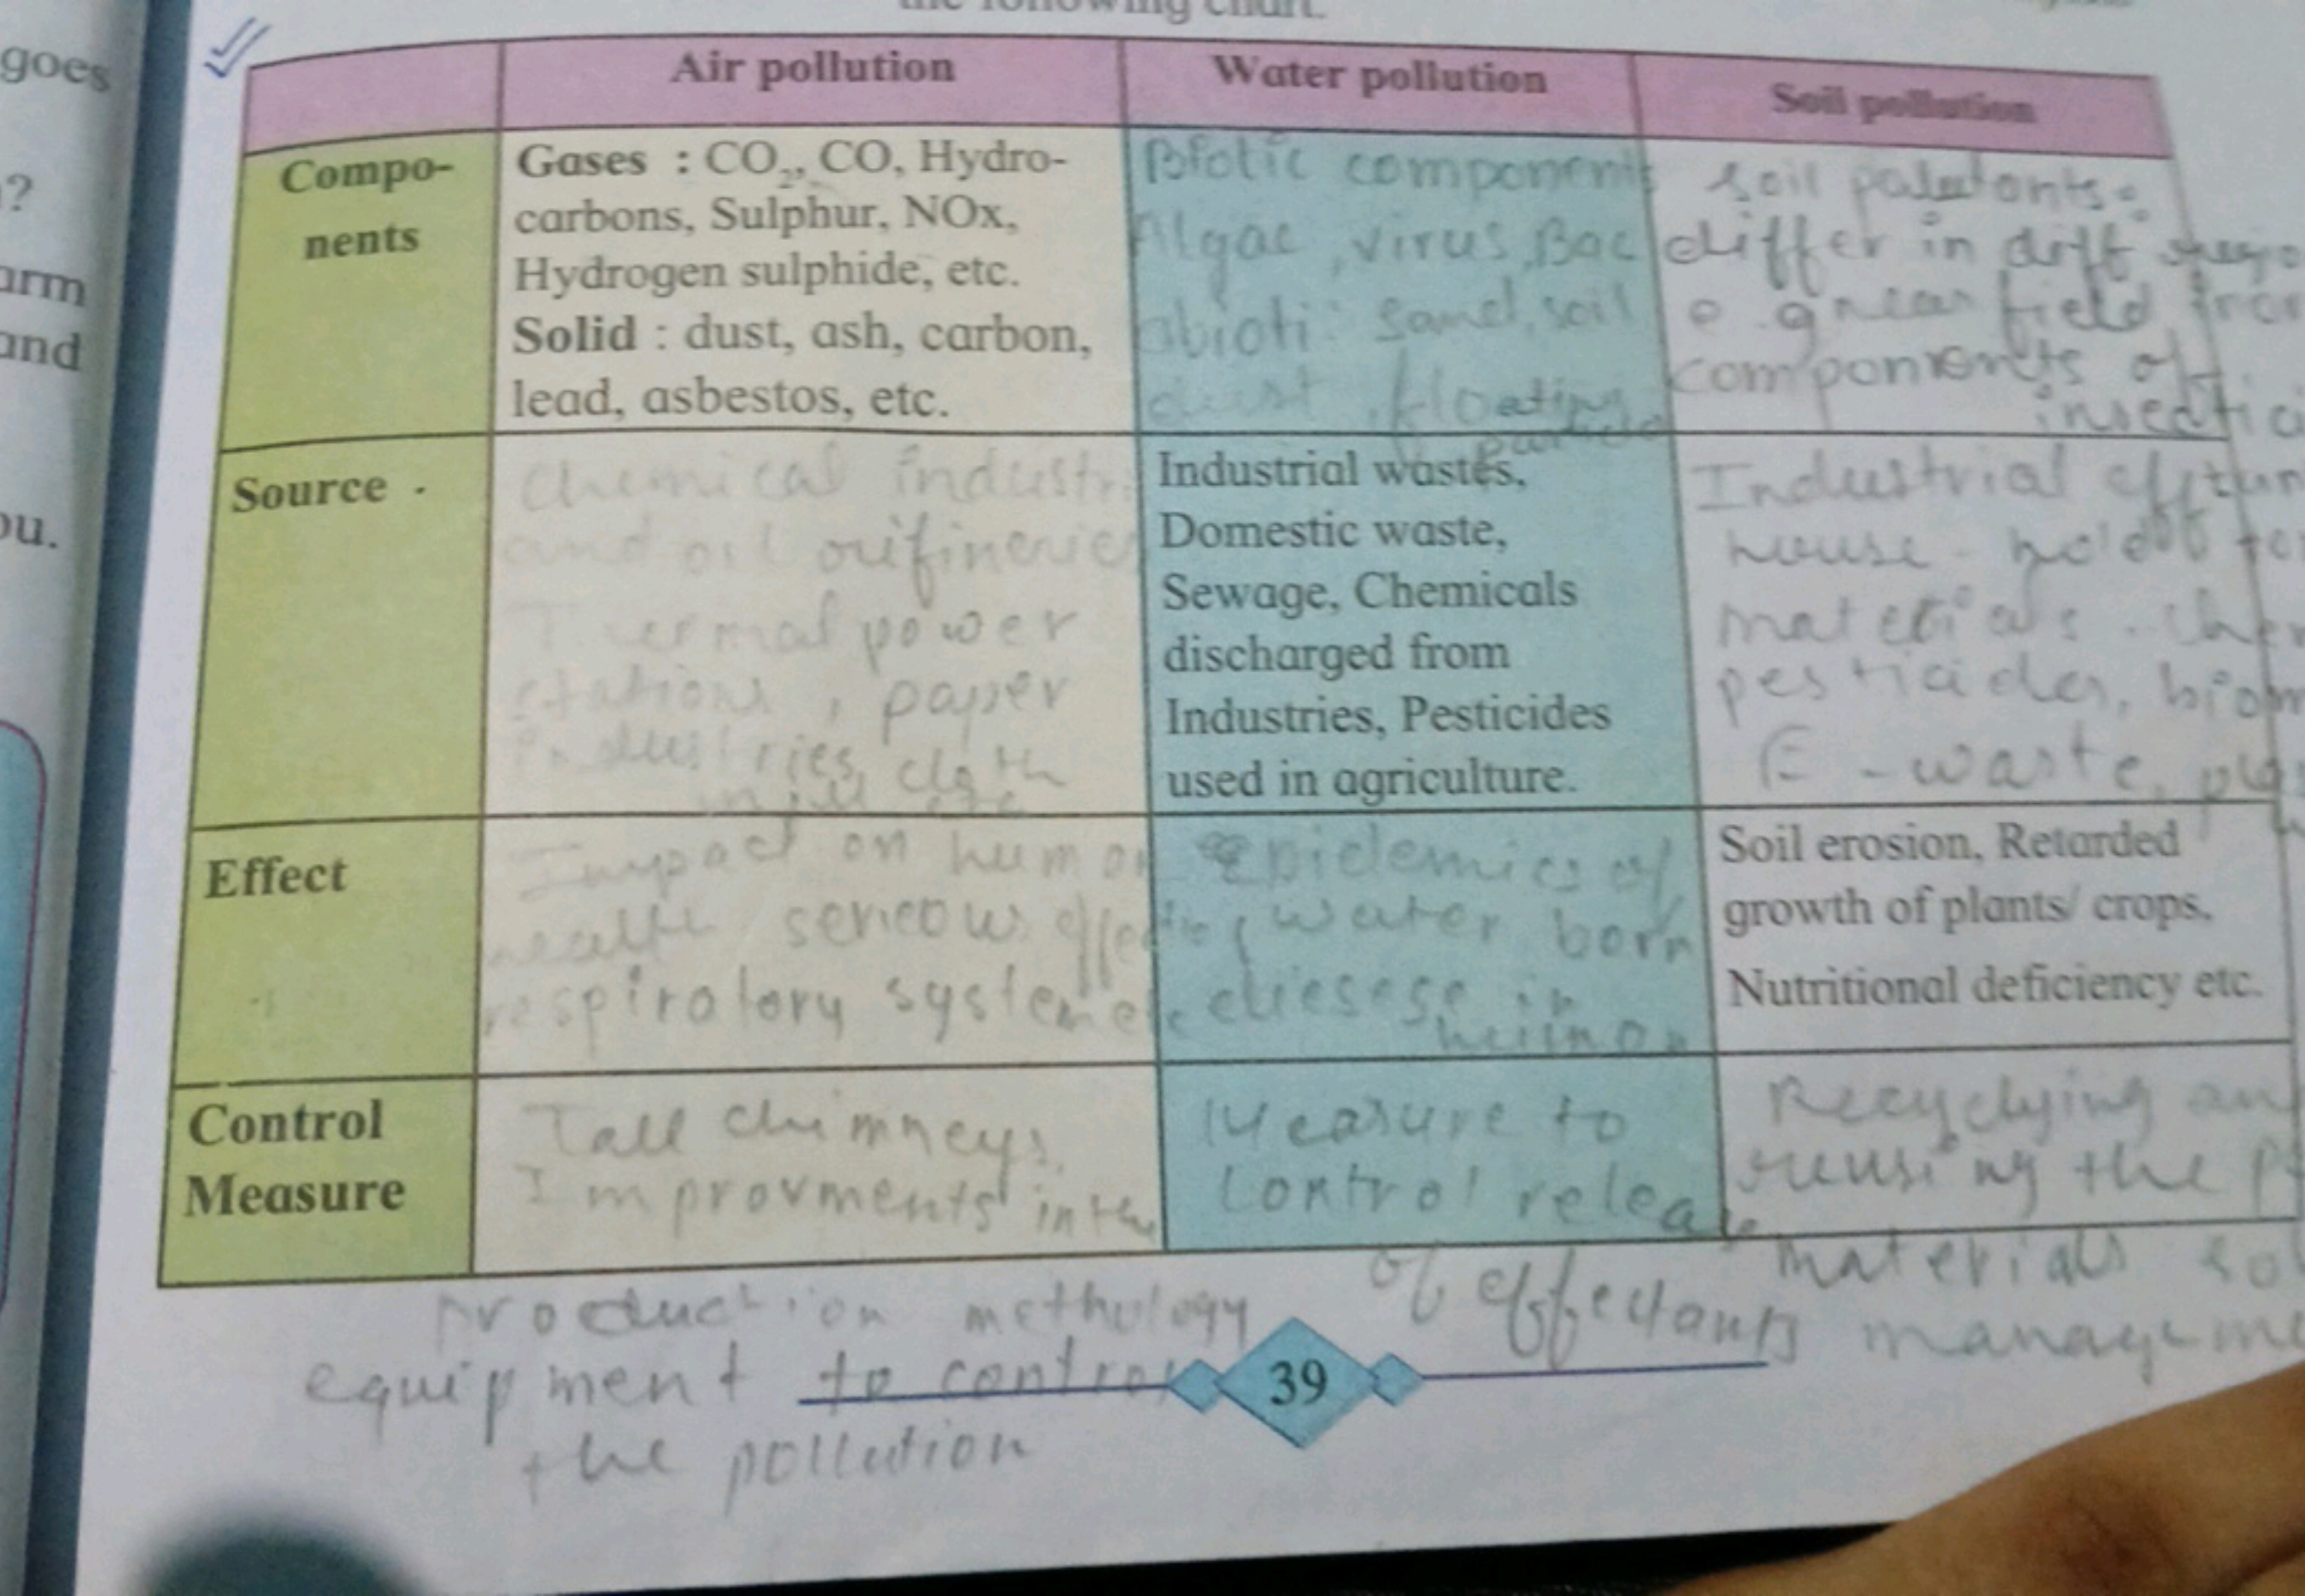 the following chart.
goes
?
arm
and
ou.
Air pollution
Water pollution
Soil pollution
Compo-
nents
Gases : CO₂, CO, Hydro-
carbons, Sulphur, NOx,
Hydrogen sulphide, etc.
Solid : dust, ash, carbon,
lead, asbestos, etc.
Biotic component
Algae, virus, Bac
abioti: sand, soil
dust, floating
particle
soil
differ in diff
near field
of
Source
chemical industr
and oil
Thermal power
stations, paper
industries, cloth
mill etc
Industrial wastes,
Domestic waste,
Sewage, Chemicals
discharged from
Industries, Pesticides
used in agriculture.
Industrial
house-hold
materials.
pesticides,
E-waste,
Effect
Impact on human
health
respiratory system
epidemics of
water born
in
human
Soil erosion, Retarded
growth of plants/ crops,
Nutritional deficiency etc.
Control
Measure
Tall chimneys,
Improvments in the
production methology
equipment to control
the pollution
Measure to
control release
of
Recyclying an
reusing the
materials
39